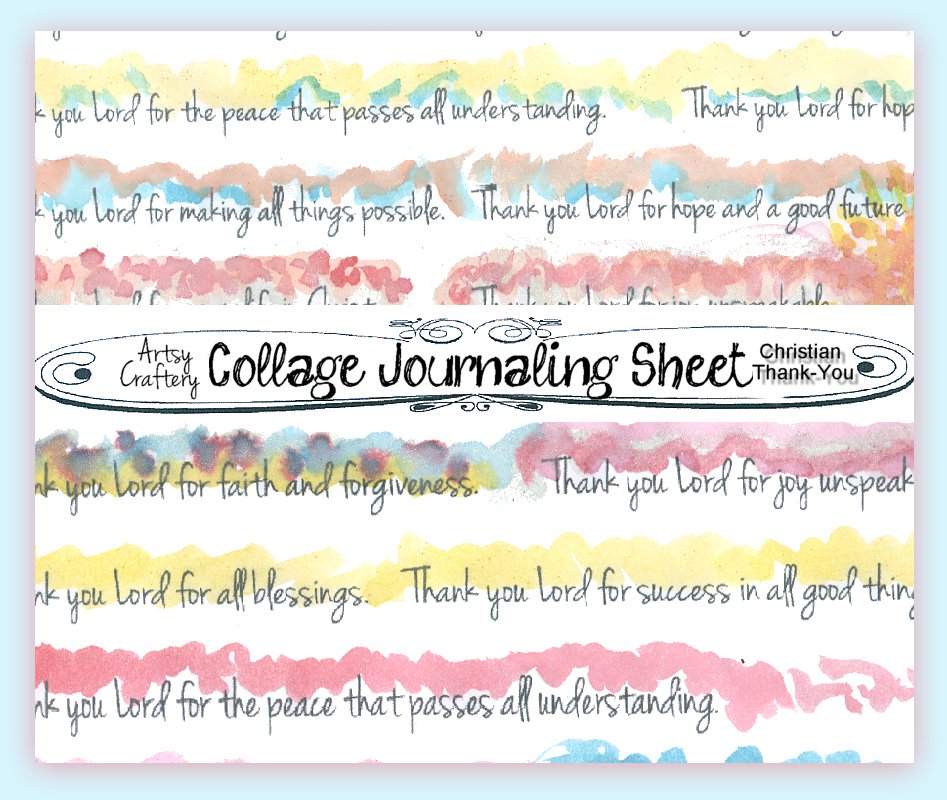 k you Lord for the peace that passes all understanding. Thank you Lord for hop
k you Lord for making all things possible. Thank you Lord for hope and a good future
Lord for Christ Thank you Lord for joy unspeakable
Artsy Craftery Collage Journaling Sheet Christian Thank-You
nk you Lord for faith and forgiveness. Thank you Lord for joy unspeak
nk you Lord for all blessings. Thank you Lord for success in all good thing
nk you Lord for the peace that passes all understanding.